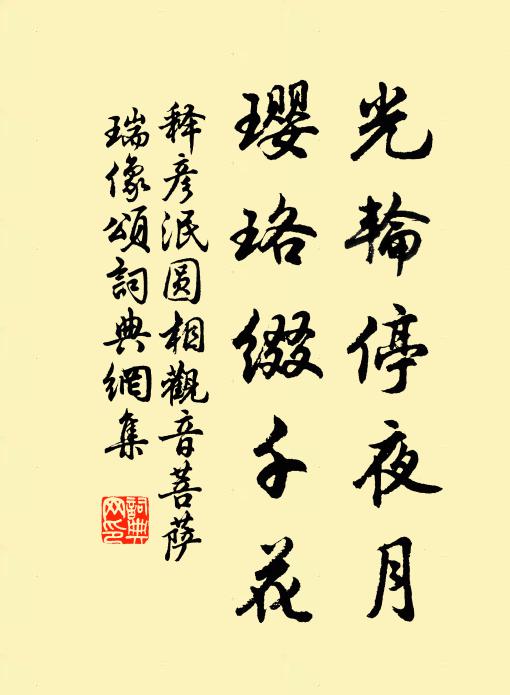 光輪停夜月
瓔珞綴千花
释彥泯圆相觀音菩萨
瑞像頌詞典網集
詞典網印